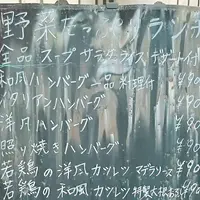 野菜たっぷりランチ
全品 スープ サラダ ライス デザート付
和風ハンバーグ 一品料理付 ¥90
イタリアンハンバーグ ¥90
洋風ハンバーグ ¥90
照り焼きハンバーグ ¥90
若鶏の洋風カツレツ マデラソース ¥90
若鶏の和風カツレツ 特製大根おろし ¥90